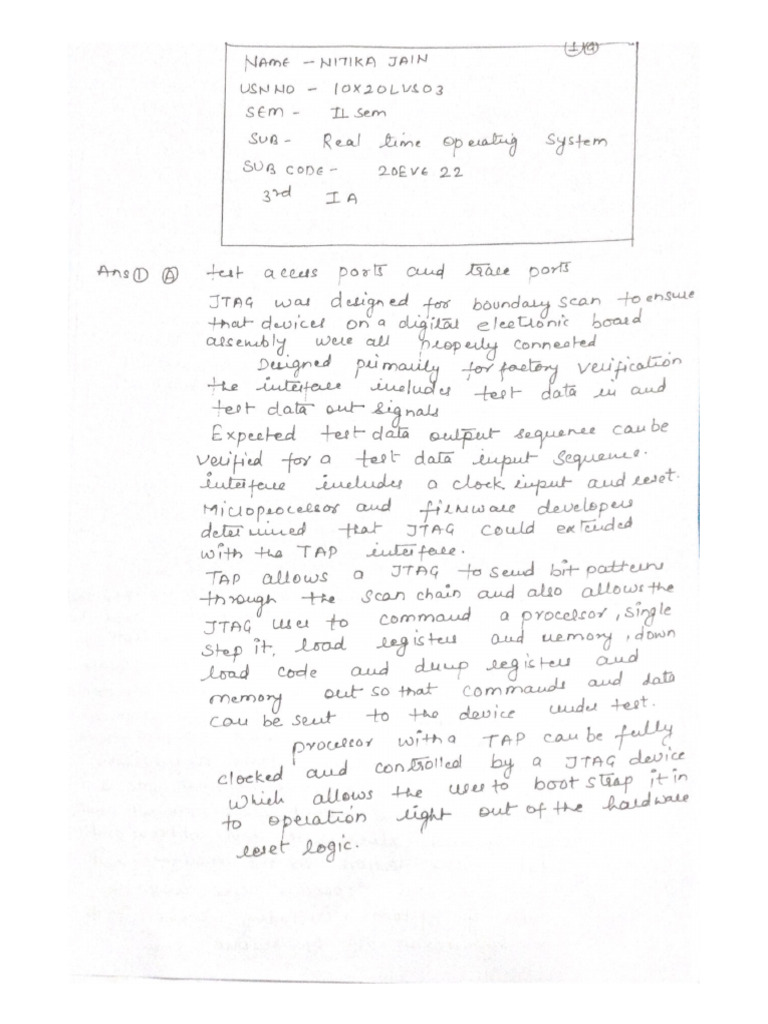 1 a
NAME - NITIKA JAIN
USN NO - 10X20LVS03
SEM - II Sem
SUB - Real time Operating System
SUB CODE - 20EVE22
3rd IA
Ans 1 A test access ports and trace ports
JTAG was designed for boundary scan to ensure
that devices on a digital electronic board
assembly were all properly connected
Designed primarily for factory verification
the interface includes test data in and
test data out signals
Expected test data output sequence can be
verified for a test data input sequence.
interface includes a clock input and reset.
Microprocessor and firmware developers
determined that JTAG could extended
with the TAP interface.
TAP allows a JTAG to send bit patterns
through the scan chain and also allows the
JTAG user to command a processor, single
step it, load registers and memory, down
load code and dump registers and
memory out so that commands and data
can be sent to the device under test.
processor with a TAP can be fully
clocked and controlled by a JTAG device
which allows the user to boot strap it in
to operation right out of the hardware
reset logic.